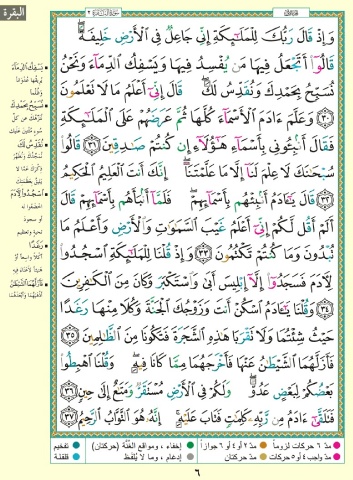 البقرة
وَإِذْ قَالَ رَبُّكَ لِلْمَلَٰٓئِكَةِ إِنِّى جَاعِلٌ فِى ٱلْأَرْضِ خَلِيفَةً ۖ
قَالُوٓا۟ أَتَجْعَلُ فِيهَا مَن يُفْسِدُ فِيهَا وَيَسْفِكُ ٱلدِّمَآءَ وَنَحْنُ
نُسَبِّحُ بِحَمْدِكَ وَنُقَدِّسُ لَكَ ۖ قَالَ إِنِّىٓ أَعْلَمُ مَا لَا تَعْلَمُونَ
٣٠ وَعَلَّمَ ءَادَمَ ٱلْأَسْمَآءَ كُلَّهَا ثُمَّ عَرَضَهُمْ عَلَى ٱلْمَلَٰٓئِكَةِ
فَقَالَ أَنۢبِـُٔونِى بِأَسْمَآءِ هَٰٓؤُلَآءِ إِن كُنتُمْ صَٰدِقِينَ ٣١ قَالُوا۟
سُبْحَٰنَكَ لَا عِلْمَ لَنَآ إِلَّا مَا عَلَّمْتَنَآ ۖ إِنَّكَ أَنتَ ٱلْعَلِيمُ ٱلْحَكِيمُ
٣٢ قَالَ يَٰٓـَٔادَمُ أَنۢبِئْهُم بِأَسْمَآئِهِمْ ۖ فَلَمَّآ أَنۢبَأَهُم بِأَسْمَآئِهِمْ قَالَ
أَلَمْ أَقُل لَّكُمْ إِنِّىٓ أَعْلَمُ غَيْبَ ٱلسَّمَٰوَٰتِ وَٱلْأَرْضِ وَأَعْلَمُ مَا
تُبْدُونَ وَمَا كُنتُمْ تَكْتُمُونَ ٣٣ وَإِذْ قُلْنَا لِلْمَلَٰٓئِكَةِ ٱسْجُدُوا۟
لِـَٔادَمَ فَسَجَدُوٓا۟ إِلَّآ إِبْلِيسَ أَبَىٰ وَٱسْتَكْبَرَ وَكَانَ مِنَ ٱلْكَٰفِرِينَ
٣٤ وَقُلْنَا يَٰٓـَٔادَمُ ٱسْكُنْ أَنتَ وَزَوْجُكَ ٱلْجَنَّةَ وَكُلَا مِنْهَا رَغَدًا
حَيْثُ شِئْتُمَا وَلَا تَقْرَبَا هَٰذِهِ ٱلشَّجَرَةَ فَتَكُونَا مِنَ ٱلظَّٰلِمِينَ ٣٥
فَأَزَلَّهُمَا ٱلشَّيْطَٰنُ عَنْهَا فَأَخْرَجَهُمَا مِمَّا كَانَا فِيهِ ۖ وَقُلْنَا ٱهْبِطُوا۟
بَعْضُكُمْ لِبَعْضٍ عَدُوٌّ ۖ وَلَكُمْ فِى ٱلْأَرْضِ مُسْتَقَرٌّ وَمَتَٰعٌ إِلَىٰ حِينٍ ٣٦
فَتَلَقَّىٰٓ ءَادَمُ مِن رَّبِّهِۦ كَلِمَٰتٍ فَتَابَ عَلَيْهِ ۚ إِنَّهُۥ هُوَ ٱلتَّوَّابُ ٱلرَّحِيمُ ٣٧
يَسْفِكُ الدِّمَاءَ
نُسَبِّحُ بِحَمْدِكَ
نُقَدِّسُ لَكَ
اسْجُدُوا لِآدَمَ
رَغَدًا
فَأَزَلَّهُمَا الشَّيْطَانُ
مدّ ٦ حركات لزوماً
مدّ ٢ أو ٤ أو ٦ جوازاً
إخفاء، ومواقع الغُنَّة (حركتان)
تفخيم
مدّ واجب ٤ أو ٥ حركات
مدّ حركتان
إدغام، وما لا يُلفَظ
قلقلة
٦